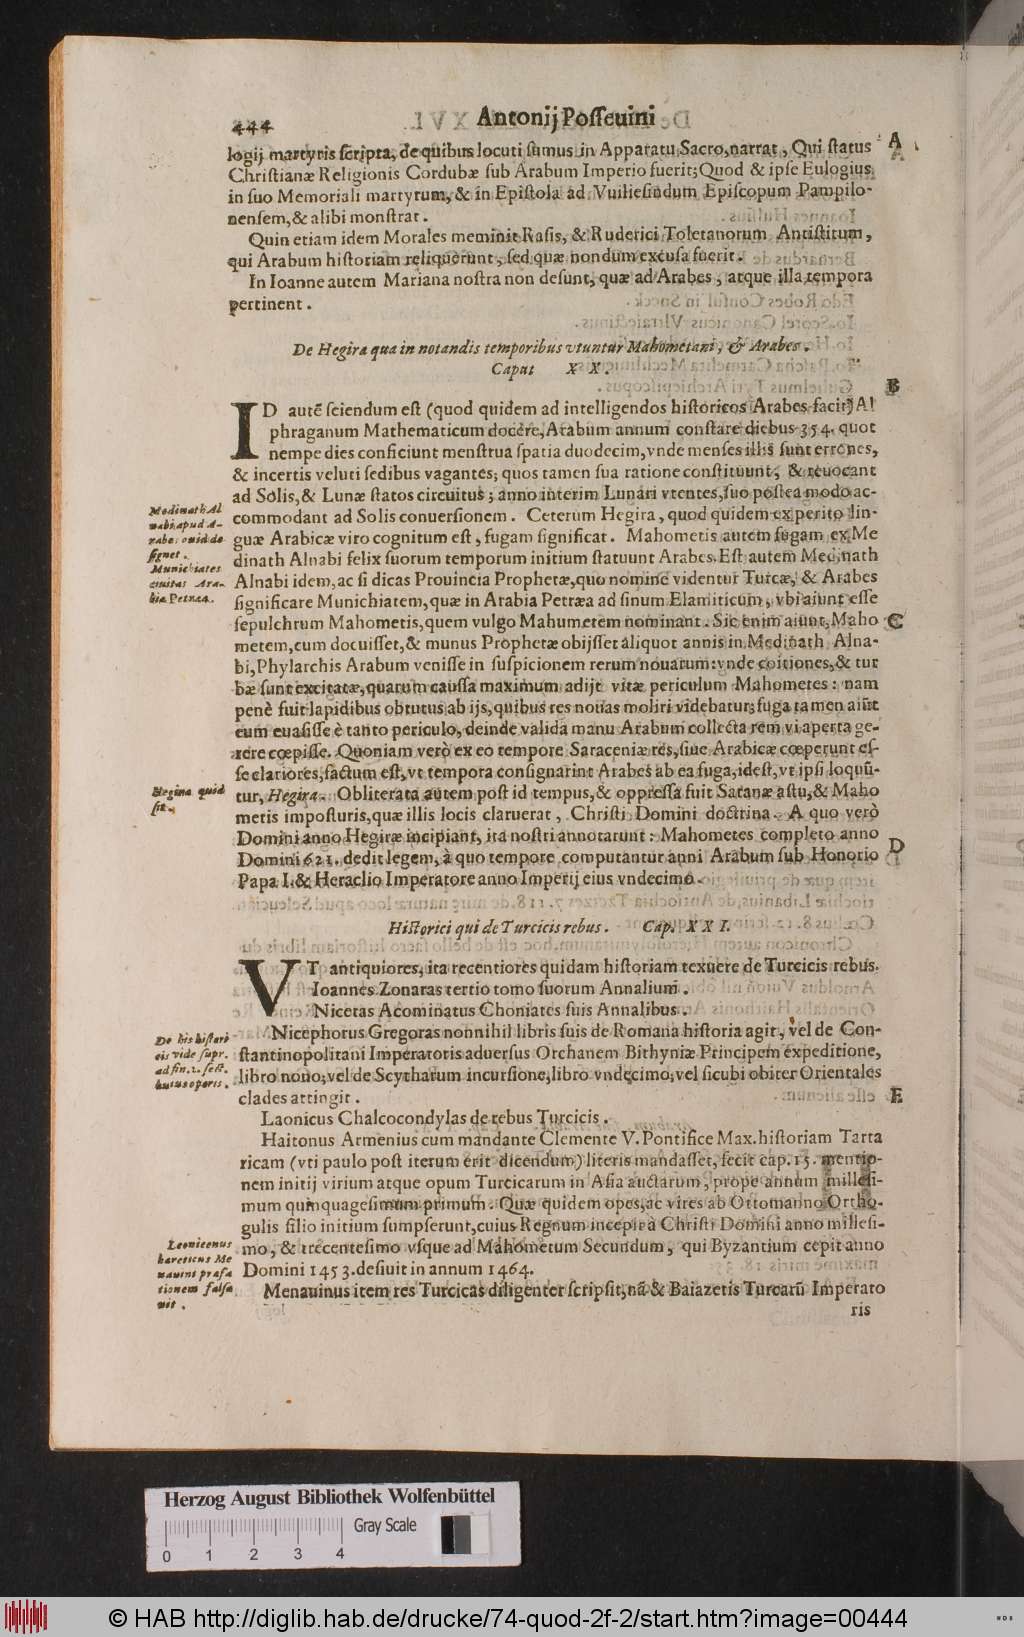 444
Antonij Posseuini
logij martyris scripta, de quibus locuti sumus in Apparatu Sacro, narrat, Qui status
Christianæ Religionis Cordubæ sub Arabum Imperio fuerit; Quod & ipse Eulogius
in suo Memoriali martyrum, & in Epistola ad Vuiliesindum Episcopum Pampilo-
nensem, & alibi monstrat.
Quin etiam idem Morales meminit Rasis, & Ruderici Toletanorum Antistitum,
qui Arabum historiam reliquerunt, sed quæ nondum excusa fuerit.
In Ioanne autem Mariana nostra non desunt, quæ ad Arabes, atque illa tempora
pertinent.
De Hegira qua in notandis temporibus vtuntur Mahometani, & Arabes.
Caput XX.
ID autẽ sciendum est (quod quidem ad intelligendos historicos Arabes facit) Al
phraganum Mathematicum docere, Arabum annum constare diebus 354. quot
nempe dies conficiunt menstrua spatia duodecim, vnde menses illis sunt errones,
& incertis veluti sedibus vagantes; quos tamen sua ratione constituunt, & reuocant
ad Solis, & Lunæ statos circuitus; anno interim Lunari vtentes, suo postea modo ac-
commodant ad Solis conuersionem. Ceterum Hegira, quod quidem ex perito lin-
guæ Arabicæ viro cognitum est, fugam significat. Mahometis autem fugam ex Me
dinath Alnabi felix suorum temporum initium statuunt Arabes. Est autem Medinath
Alnabi idem, ac si dicas Prouincia Prophetæ, quo nomine videntur Turcæ, & Arabes
significare Munichiatem, quæ in Arabia Petræa ad sinum Elamiticum, vbi aiunt esse
sepulchrum Mahometis, quem vulgo Mahumetem nominant. Sic enim aiunt, Maho
metem, cum docuisset, & munus Prophetæ obijsset aliquot annis in Medinath Alna-
bi, Phylarchis Arabum venisse in suspicionem rerum nouarum: vnde coitiones, & tur
bæ sunt excitatæ, quarum caussa maximum adijt vitæ periculum Mahometes: nam
penè fuit lapidibus obtutus ab ijs, quibus res nouas moliri videbatur; fuga tamen aiũt
eum euasisse è tanto periculo, deinde valida manu Arabum collecta rem vi aperta ge-
rere cœpisse. Quoniam verò ex eo tempore Saraceniæ res, siue Arabicæ cœperunt es-
se clariores, factum est, vt tempora consignarint Arabes ab ea fuga, idest, vt ipsi loquũ-
tur, Hegira. Obliterata autem post id tempus, & oppressa fuit Satanæ astu, & Maho
metis imposturis, quæ illis locis claruerat, Christi Domini doctrina. A quo verò
Domini anno Hegiræ incipiant, ita nostri annotarunt: Mahometes completo anno
Domini 621. dedit legem, à quo tempore computantur anni Arabum sub Honorio
Papa I. & Heraclio Imperatore anno Imperij eius vndecimo.
Historici qui de Turcicis rebus. Cap. XXI.
VT antiquiores, ita recentiores quidam historiam texuere de Turcicis rebus.
Ioannes Zonaras tertio tomo suorum Annalium.
Nicetas Acominatus Choniates suis Annalibus.
Nicephorus Gregoras nonnihil libris suis de Romana historia agit, vel de Con-
stantinopolitani Imperatoris aduersus Orchanem Bithyniæ Principem expeditione,
libro nono; vel de Scytharum incursione, libro vndecimo; vel sicubi obiter Orientales
clades attingit.
Laonicus Chalcocondylas de rebus Turcicis.
Haitonus Armenius cum mandante Clemente V. Pontifice Max. historiam Tarta
ricam (vti paulo post iterum erit dicendum) literis mandasset, fecit cap. 15. mentio-
nem initij virium atque opum Turcicarum in Asia auctarum, prope annum millesi-
mum quinquagesimum primum. Quæ quidem opes, ac vires ab Ottomanno Ortho-
gulis filio initium sumpserunt, cuius Regnum incepit à Christi Domini anno millesi-
mo, & trecentesimo vsque ad Mahometum Secundum, qui Byzantium cepit anno
Domini 1453. desiuit in annum 1464.
Menauinus item res Turcicas diligenter scripsit, nã & Baiazetis Turcarũ Imperato
ris
Medinath Al
nabi, apud A-
rabes quid de
signet.
Munichiates
ciuitas Ara-
biæ Petrææ.
Hegira quid
sit.
De his histori
cis vide supr.
ad fin. 2. sect.
huius operis.
Leonicenus
hæreticus Me
nauini præfa
tionem falsa
uit.
A
B
C
D
E
Herzog August Bibliothek Wolfenbüttel
Gray Scale
0 1 2 3 4
© HAB http://diglib.hab.de/drucke/74-quod-2f-2/start.htm?image=00444